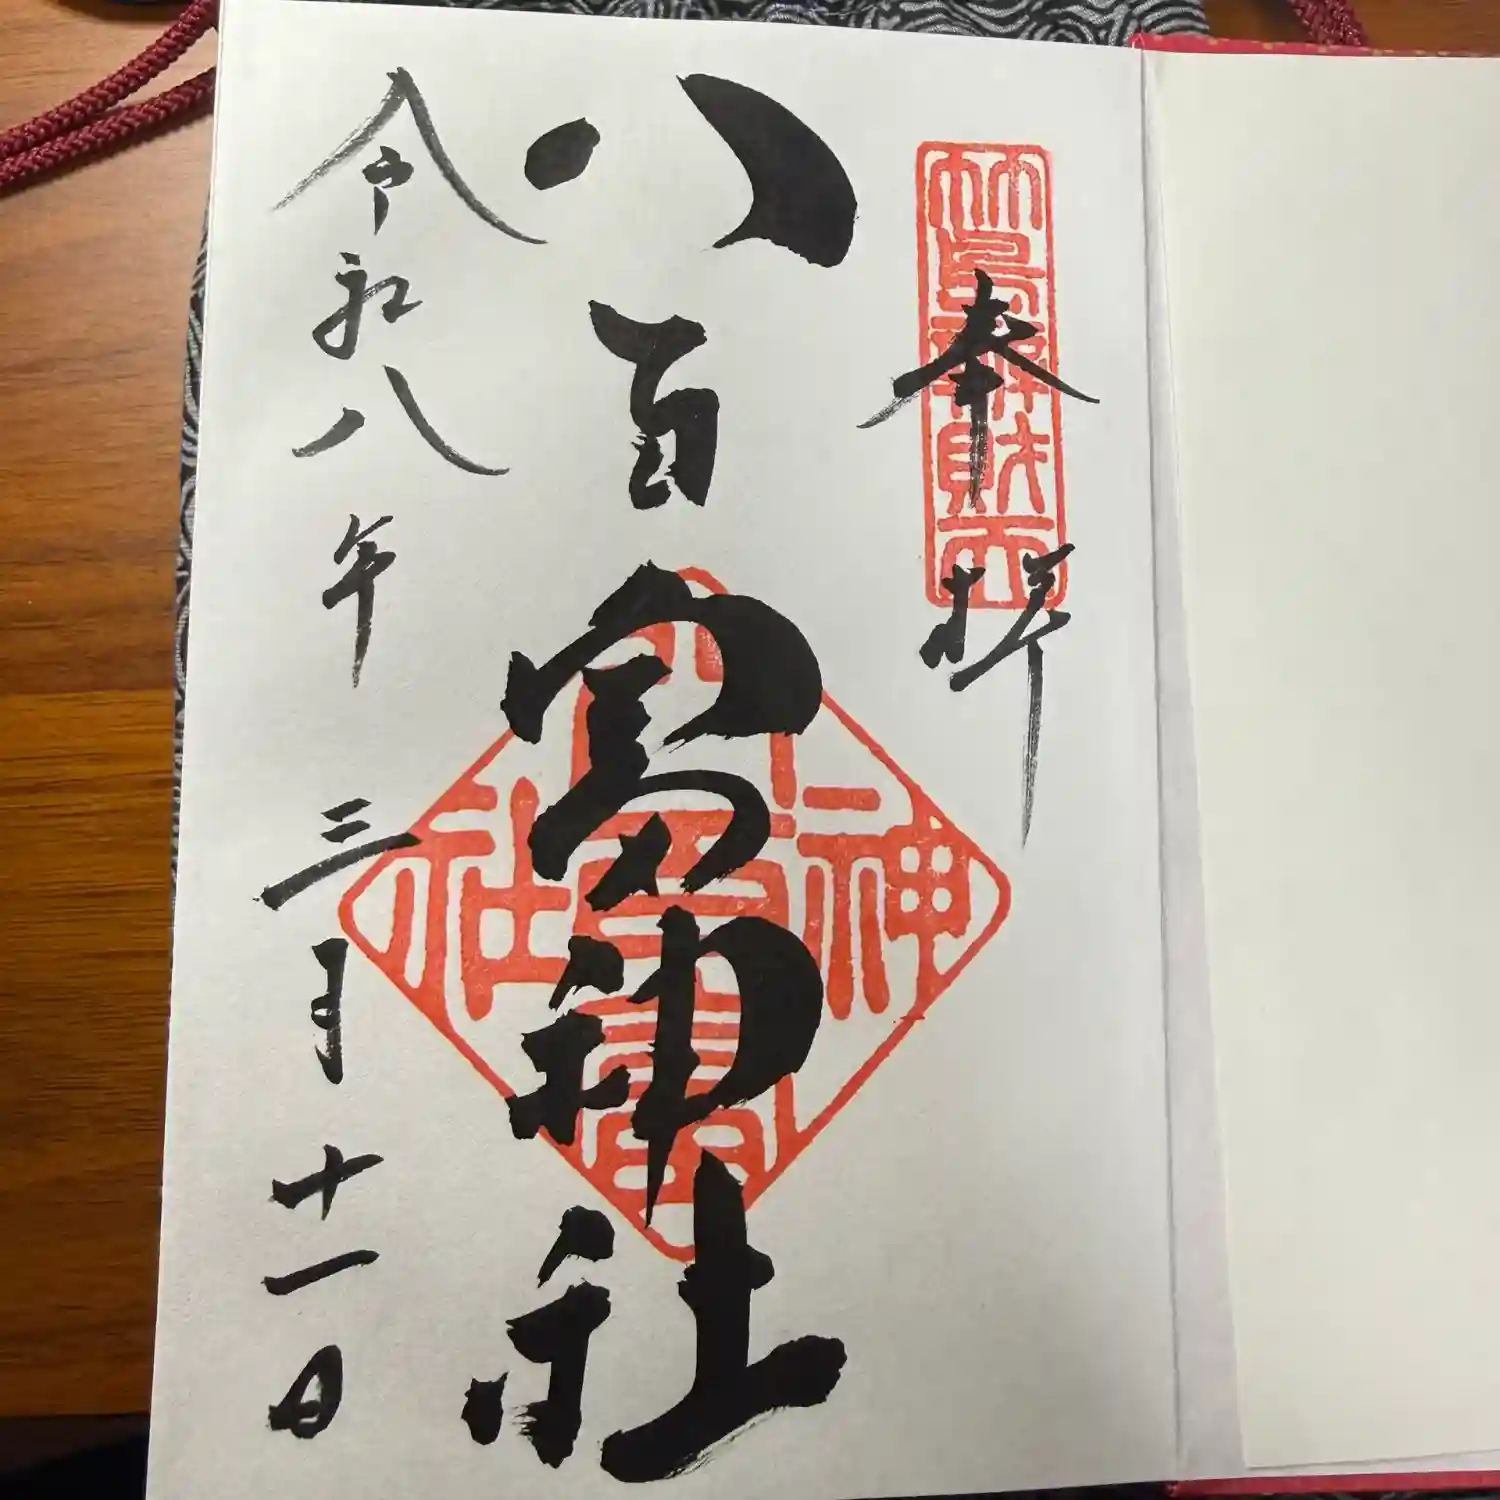 奉拝
竹島弁財天
八百富神社
八百富神社
令和八年三月十一日